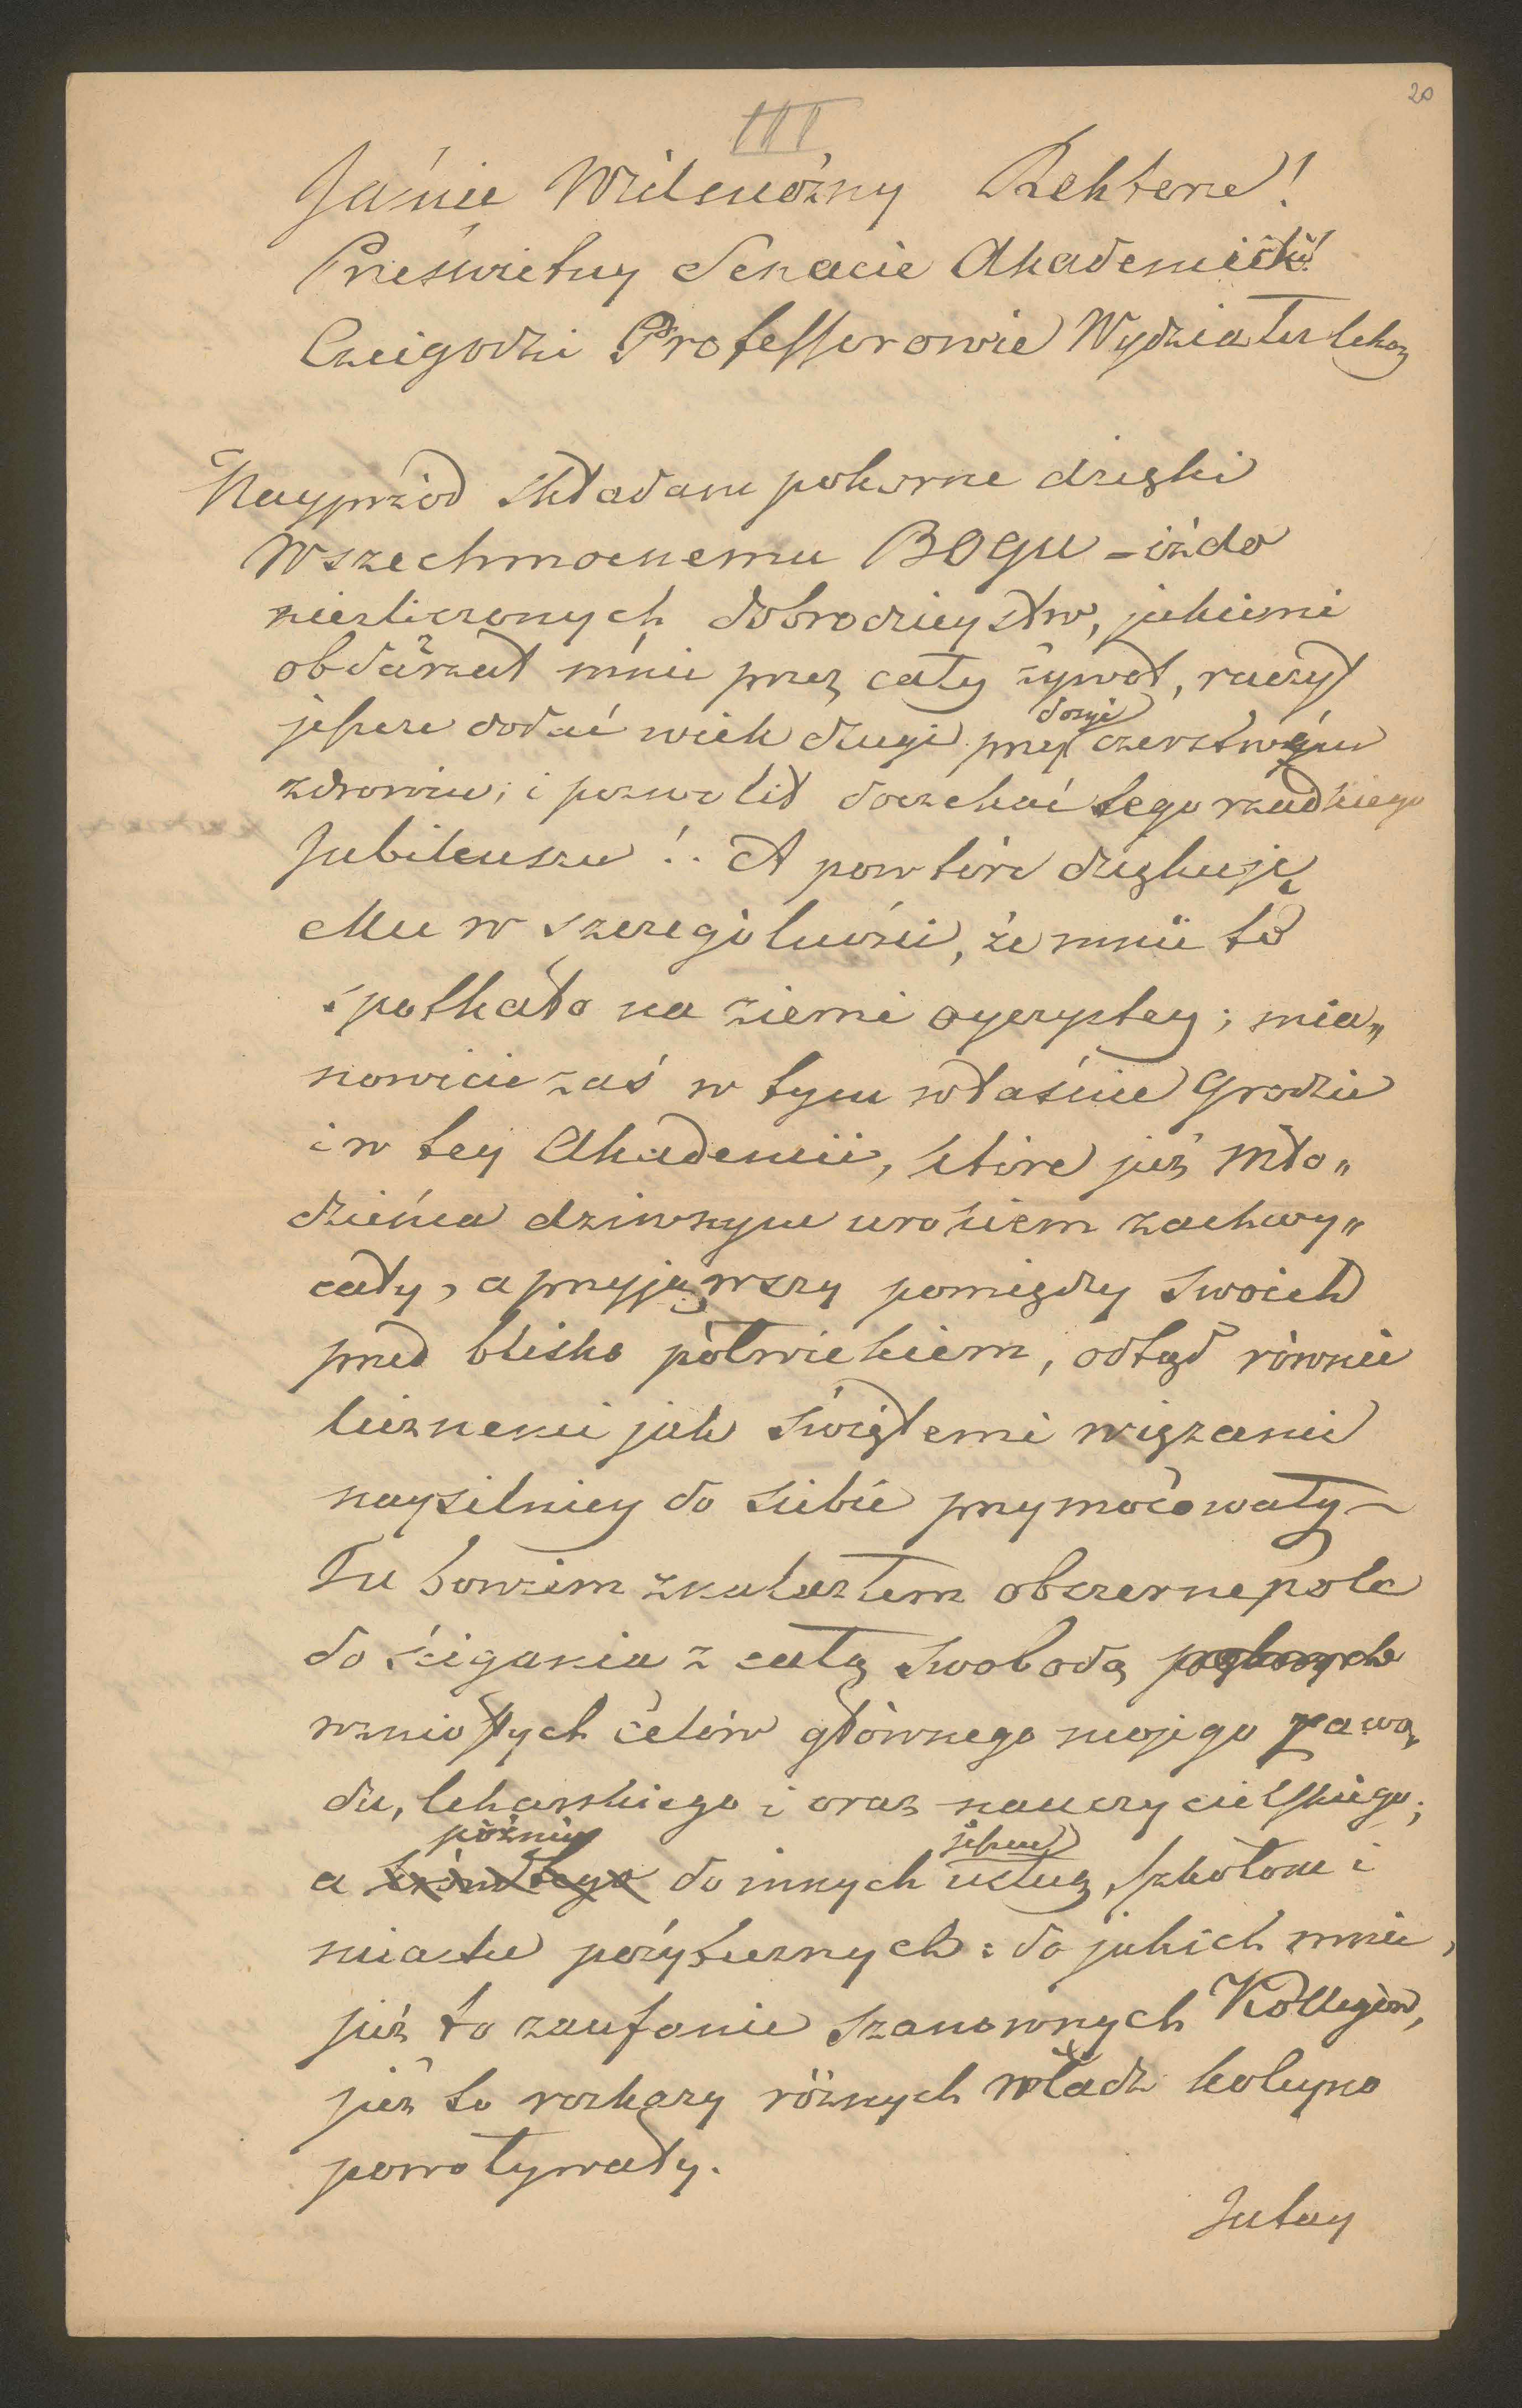 20
III
Jaśnie Wielmożny Rektorze!
Prześwietny Senacie Akademicki!
Czcigodni Professorowie Wydziału lekar
Nayprzód składam pokorne dzięki
Wszechmocnemu BOGU – iż do
niezliczonych dobrodzieystw, jakiemi
obdarzał mnie przez cały żywot, raczył
jeszcze dodać wiek długi przy dosyć czerstwém
zdrowiu; i pozwolił doczekać tego rzadkiego
Jubileuszu!. A powtóre dziękuję
Mu w szczególności, że mnie to
spotkało na ziemi oyczystey; mia„
nowicie zaś w tym właśnie Grodzie
i w tey Akademii, które już mło„
dzieńca dziwnym urokiem zachwy„
cały, a przyjąwszy pomiędzy swoich
przed blisko półwiekiem, odtąd równie
licznemi jak świętemi więzami
naysilniey do siebie przymocowały –
Tu bowiem znalazłem obszerne pole
do ścigania z całą swobodą
wzniosłych celów głównego mojego zawo„
du, lekarskiego i oraz nauczycielskiego;
a później do innych jeszcze usług, szkołom i
miastu pożytecznych: do jakich mnie,
już to zaufanie szanownych Kollegów,
już to rozkazy różnych władz koleyno
powoływały.
Jutay